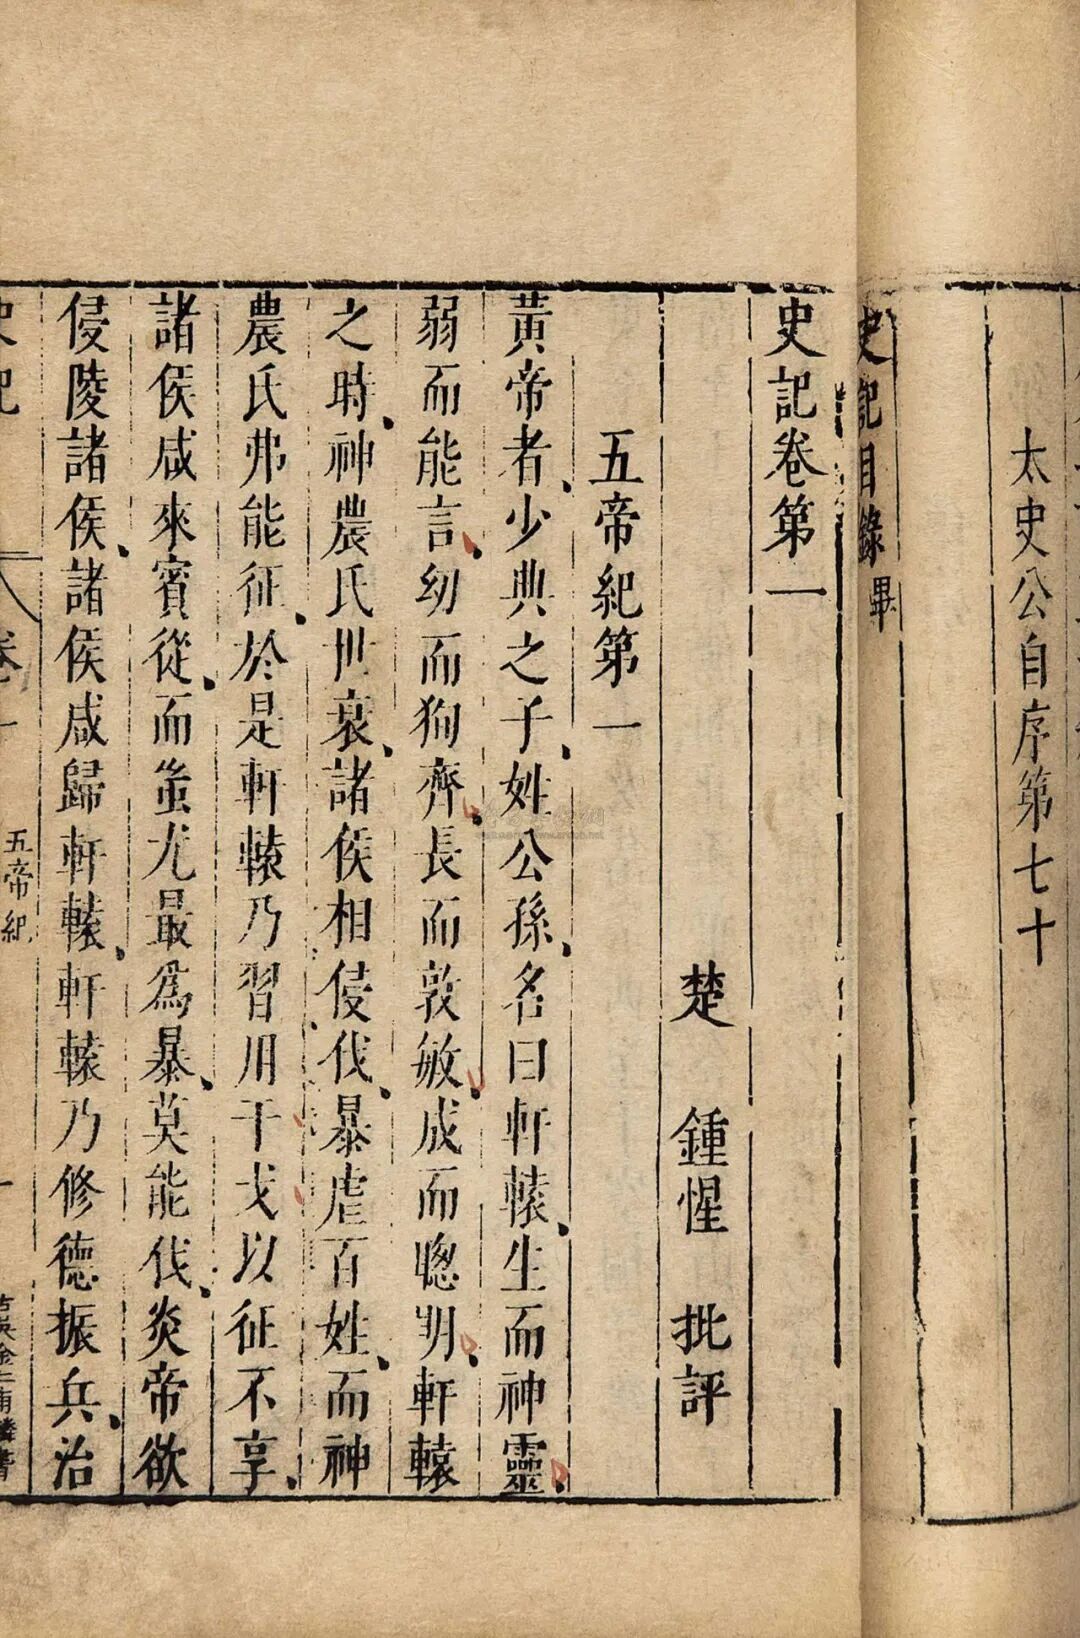 太史公自序第七十
史記目錄畢
史記卷第一
楚 鍾惺 批評
五帝紀第一
黃帝者少典之子姓公孫名曰軒轅生而神靈
弱而能言幼而狥齊長而敦敏成而聰明軒轅
之時神農氏世衰諸侯相侵伐暴虐百姓而神
農氏弗能征於是軒轅乃習用干戈以征不享
諸侯咸來賓從而蚩尤最爲暴莫能伐炎帝欲
侵陵諸侯諸侯咸歸軒轅軒轅乃修德振兵治
史記 卷一 五帝紀 一